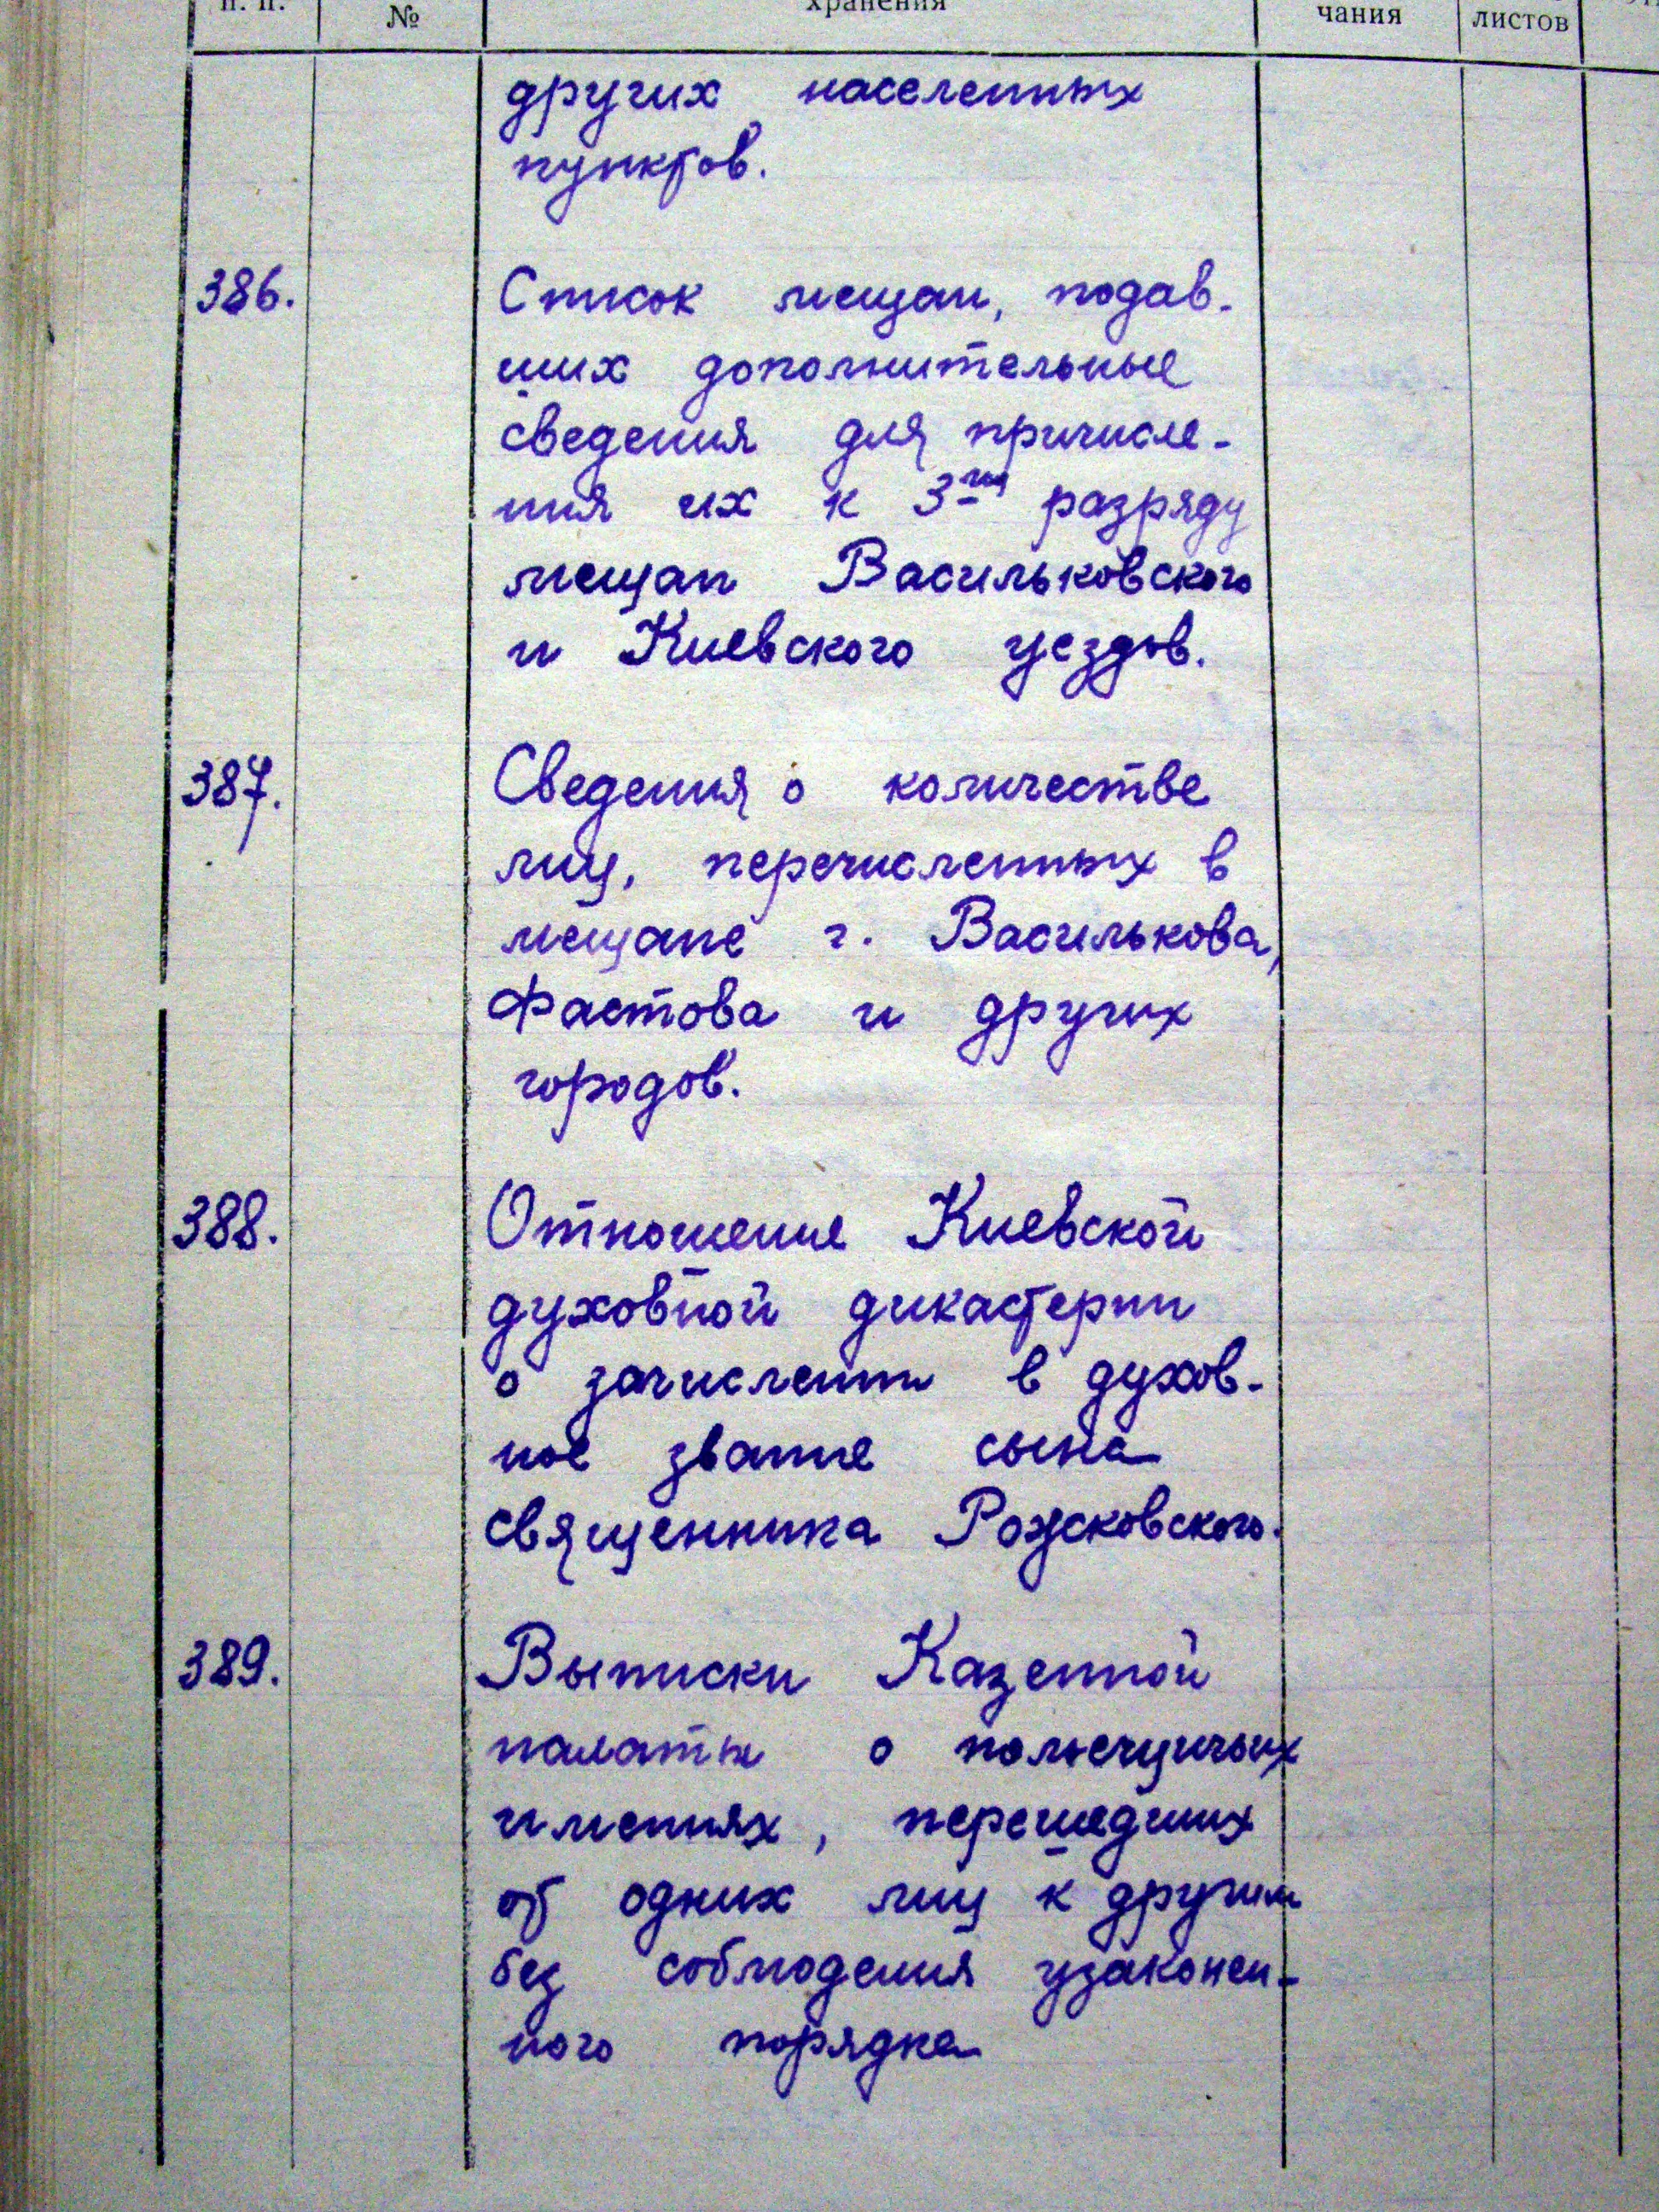 п. п.
№
хранения
чания
листов
других населенных
пунктов.
386.
Список мещан, подав-
ших дополнительные
сведения для причисле-
ния их к 3му разряду
мещан Васильковского
и Киевского уездов.
387.
Сведения о количестве
лиц, перечисленных в
мещане г. Василькова,
Фастова и других
городов.
388.
Отношение Киевской
духовной дикастерии
о зачислении в духов-
ное звание сына
священника Рожковского.
389.
Выписки Казенной
палаты о
имениях, перешедших
от одних лиц к другим
без соблюдения узаконен-
ного порядка